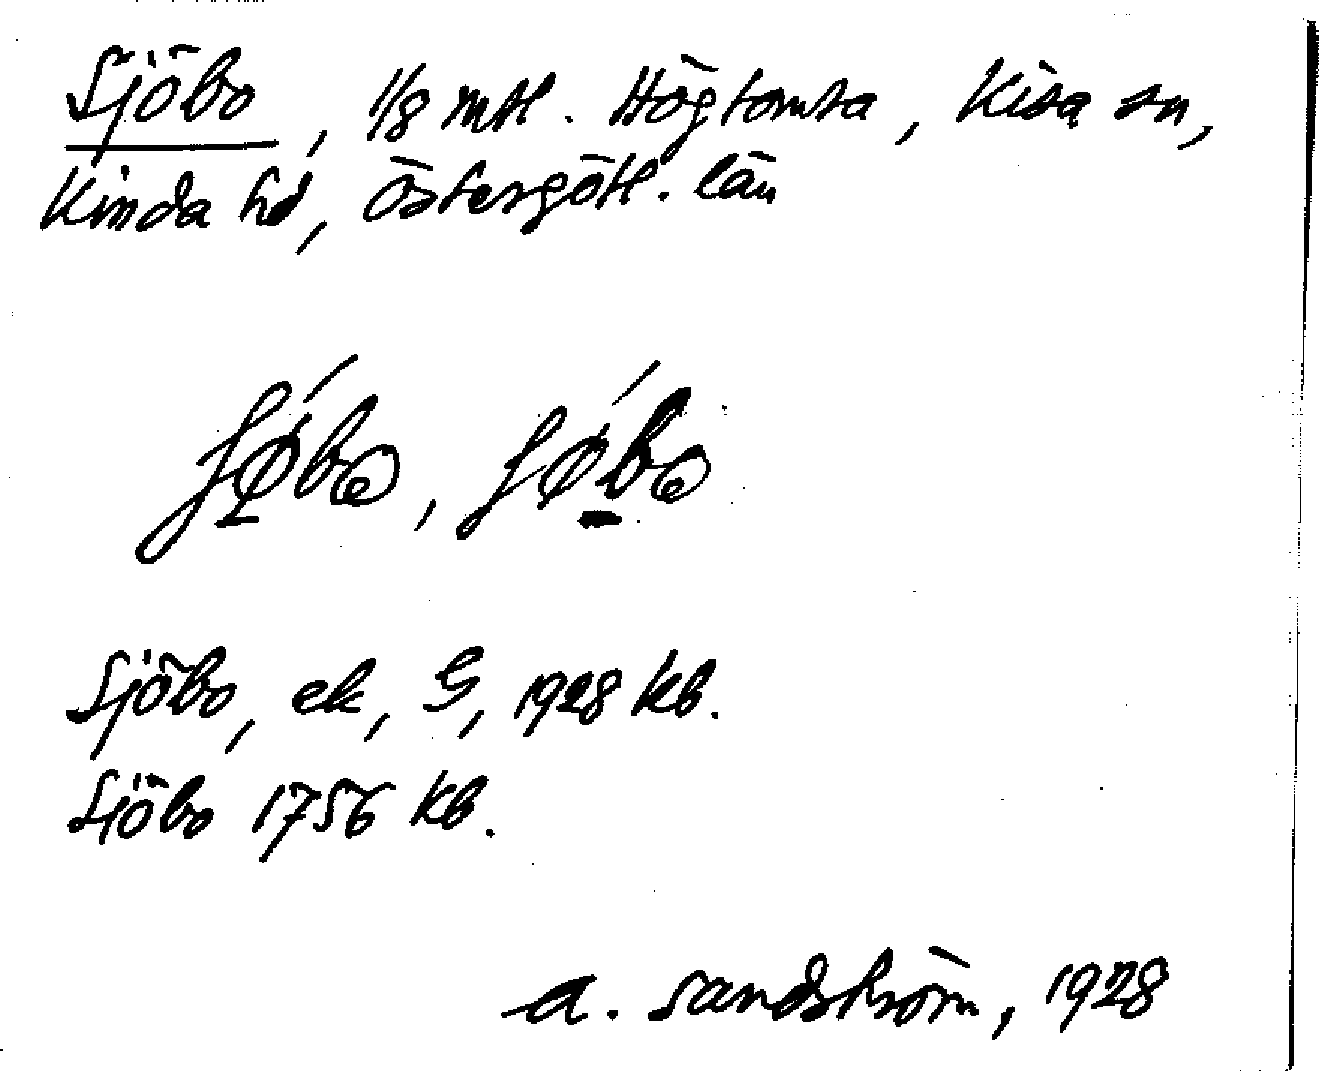 Sjöbo, 1/8 mtl. Högtomta, Kisa sn,
Kinda hd, Östergötl. län
Sjöbo, ek, G, 1928 kb.
Siöbo 1756 kb.
A. Sandström, 1928